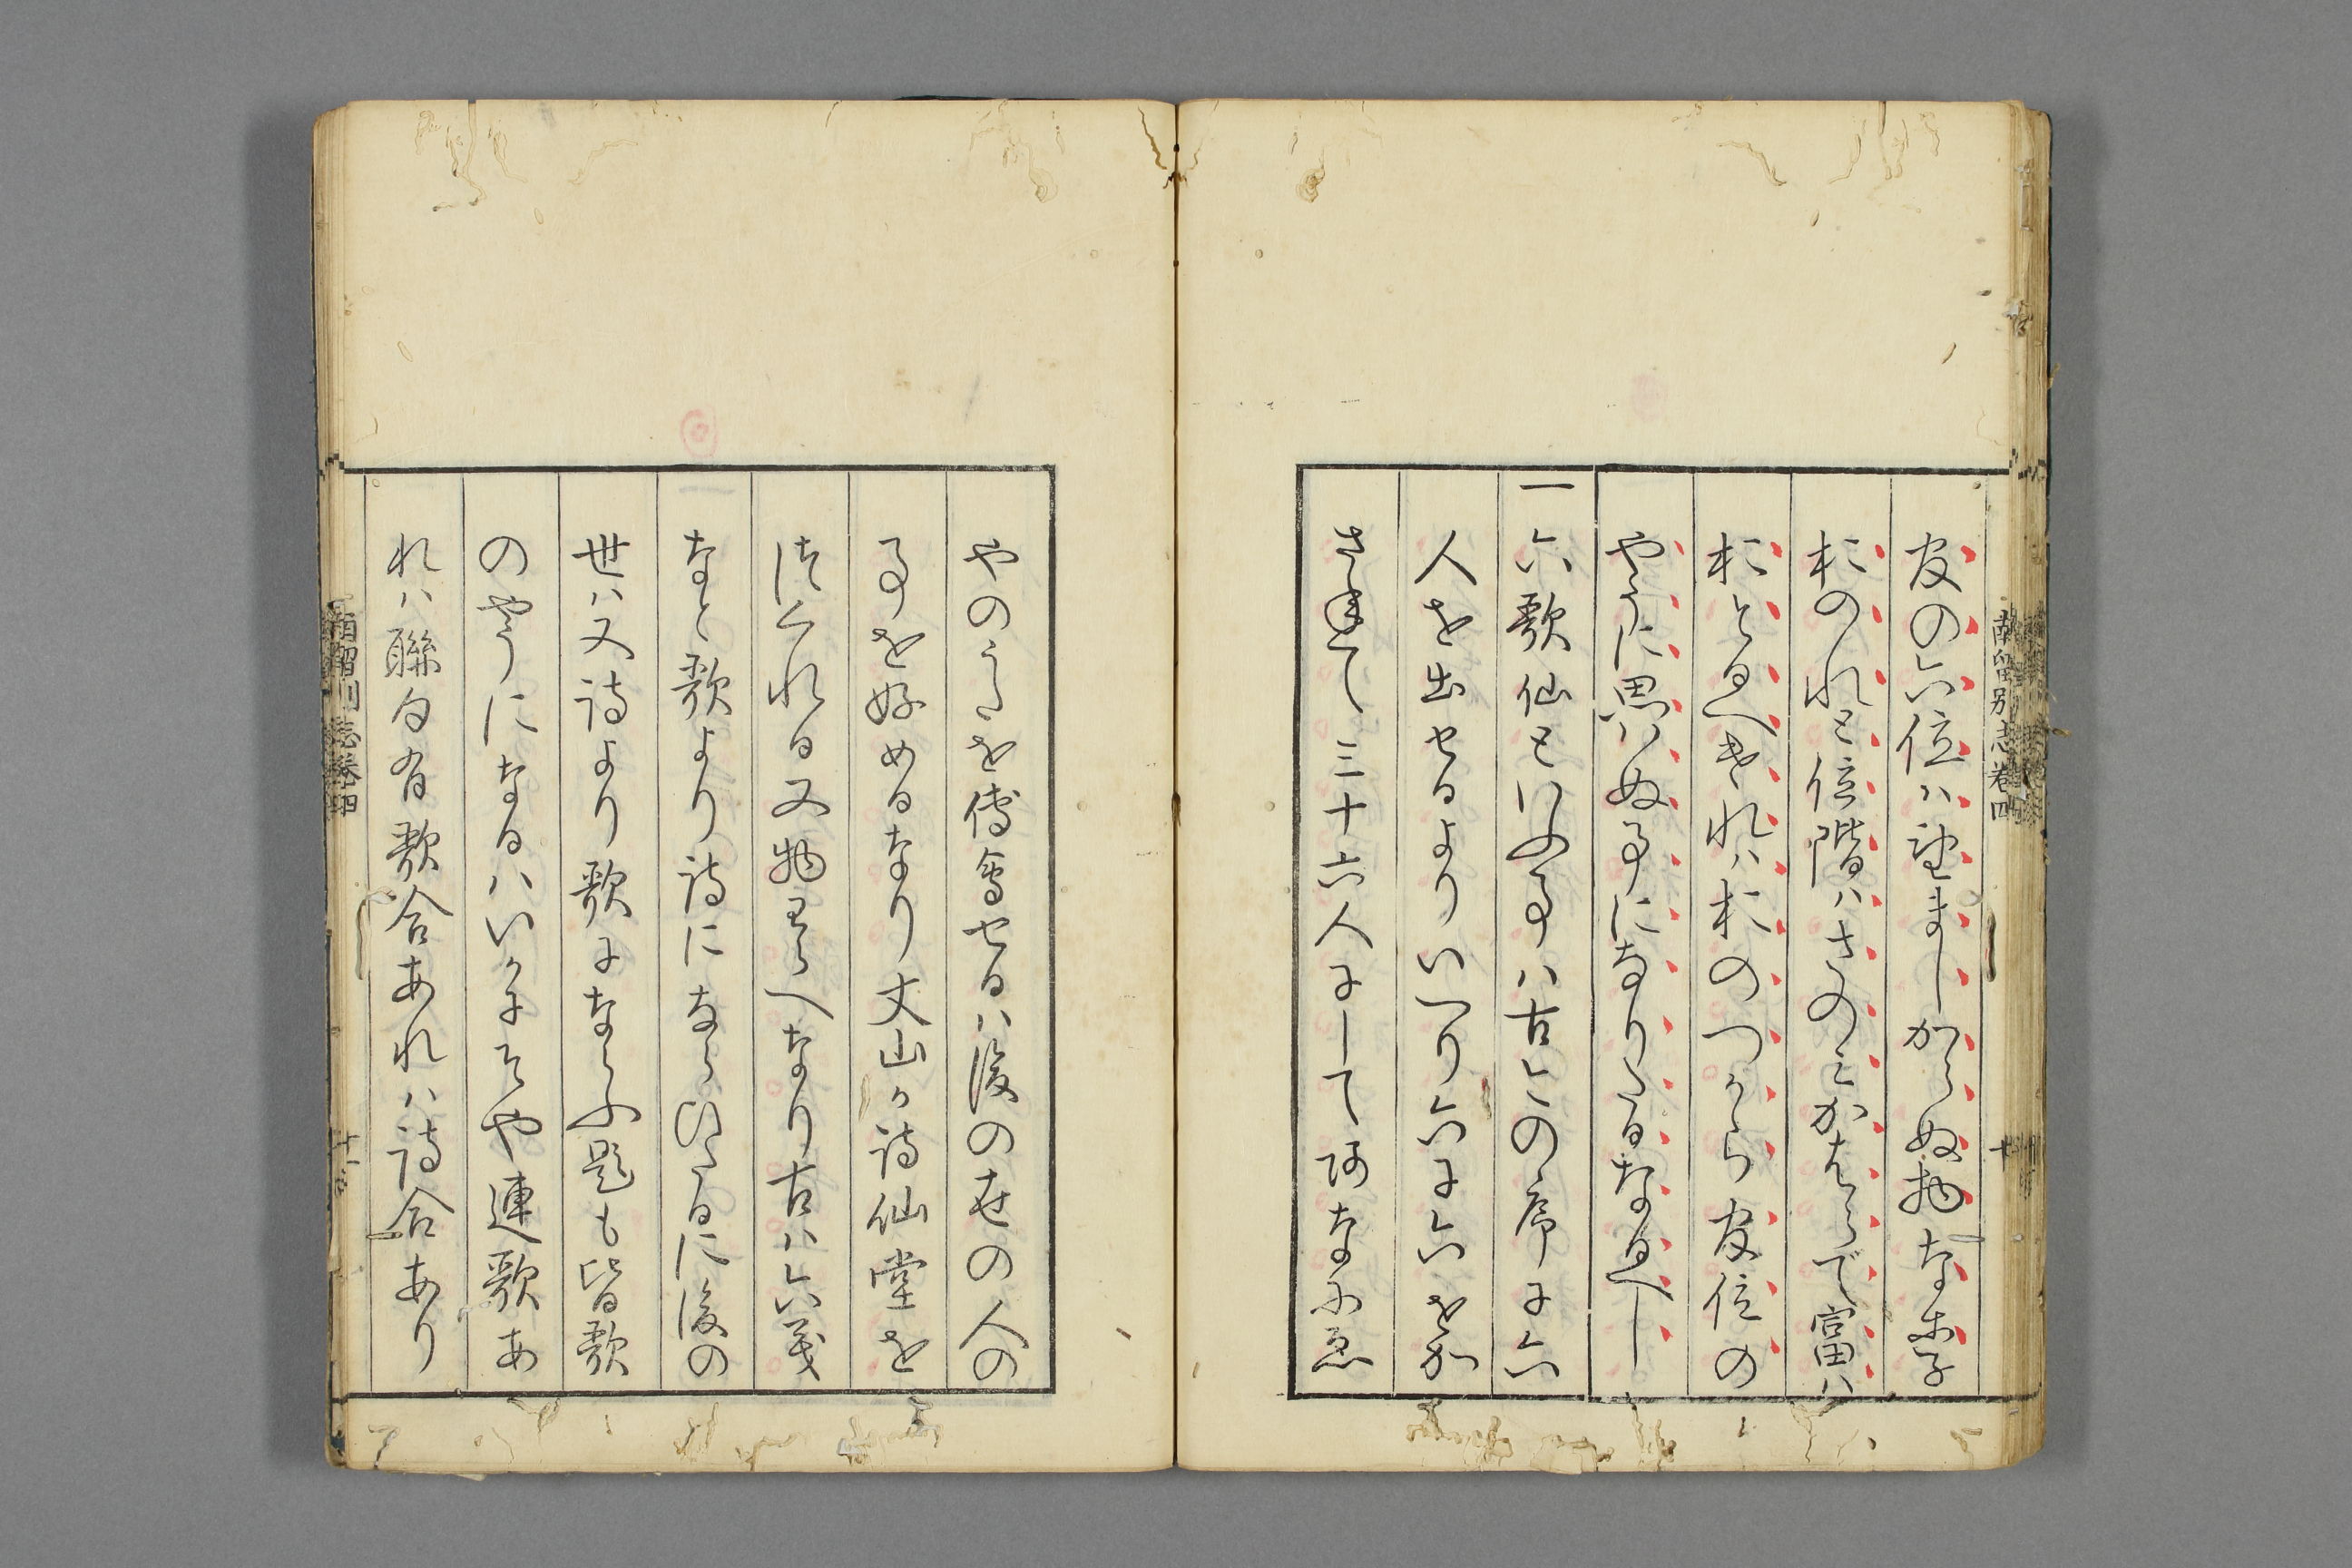 南留別志卷四
十
官の六位ハ望ましからぬ物なれ共
おのれと位階ハさのミかはらで富ハ
おとるへけれハおのつから官位の
やうに思ハぬ事になりたるなるへし
一六歌仙といふ事ハ古今の序に六
人を出せるよりいへり六に六をか
さねて三十六人にして河なみ忍
やのうたを傅會せるハ後の世の人の
事を好めるなり丈山か詩仙堂を
つくれる又物わらへなり古ハ六義
なと歌より詩にならひたるに後の
世ハ又詩より歌にならふ題も皆歌
のやうになるハいかにそや連歌あ
れハ聯句有歌合あれハ詩合あり
南留別志卷四
十一